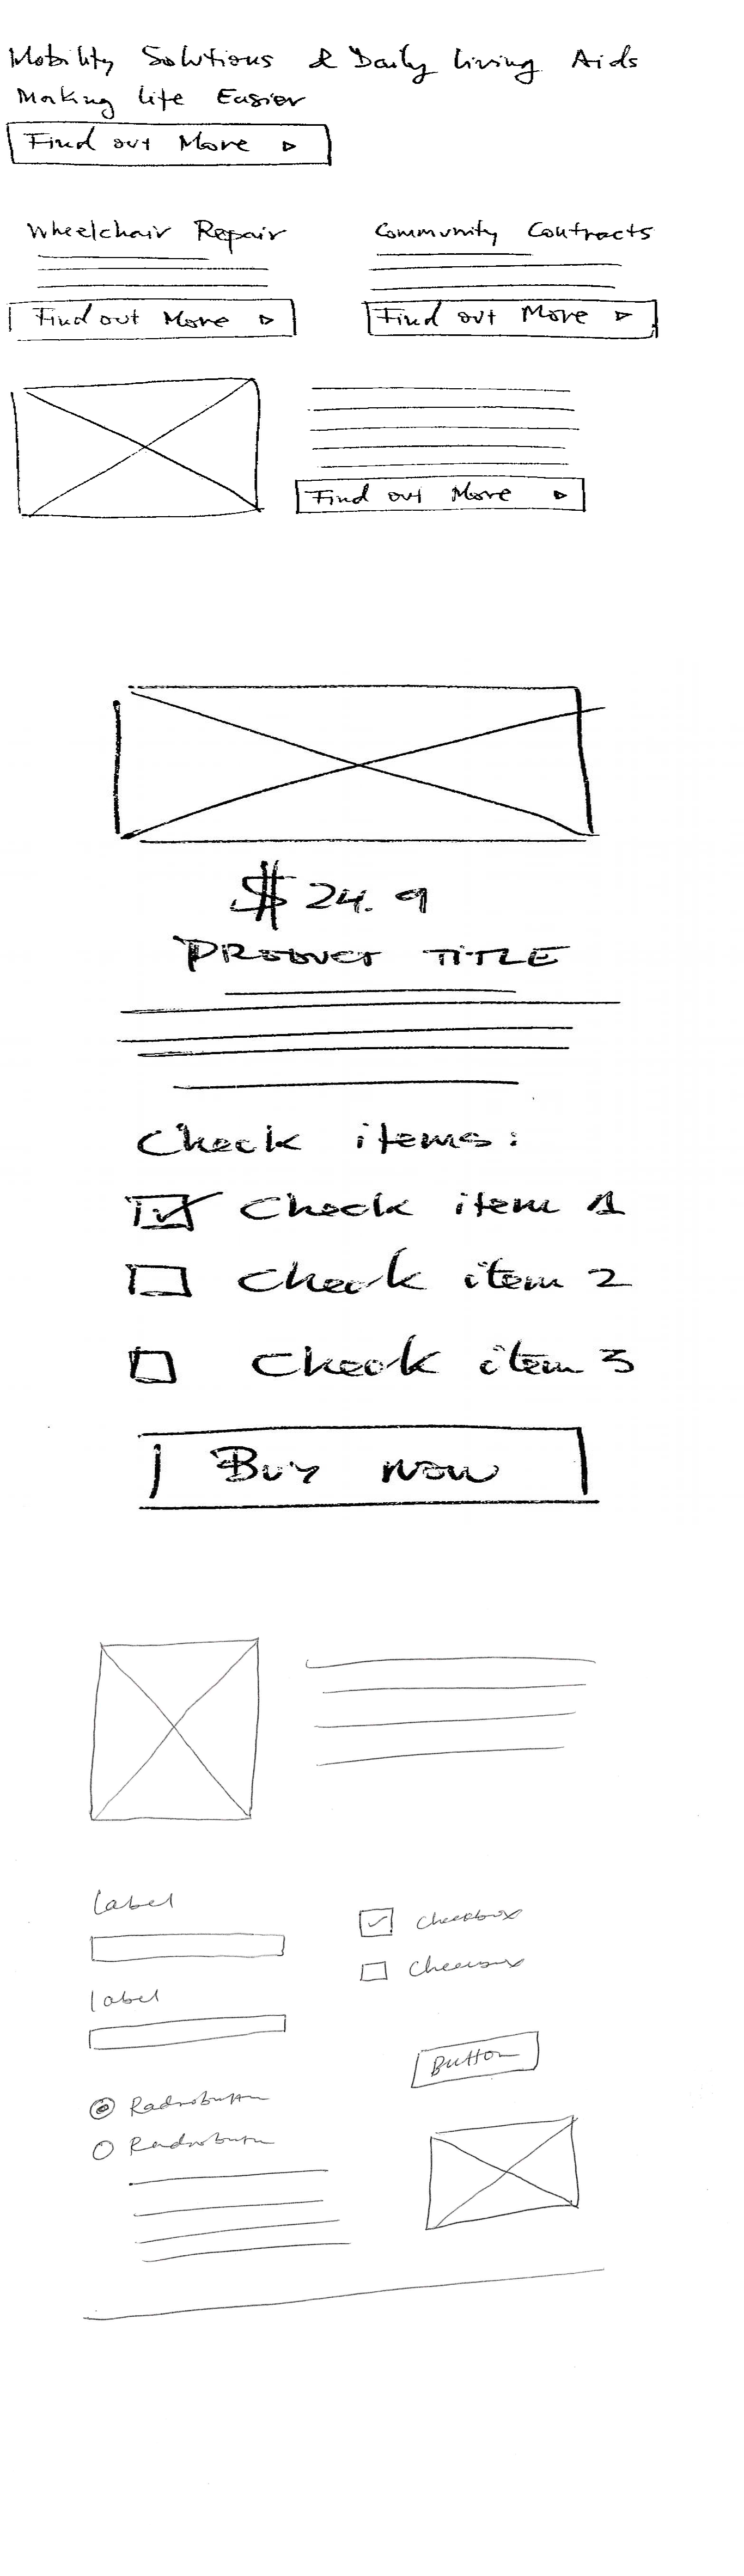 Mobility Solutions & Daily Living Aids
Making life Easier
Find out More ▷
Wheelchair Repair
Find out More ▷
Community Contracts
Find out More ▷
Find out More ▷
$ 24.9
PRODUCT TITLE
Check items:
Check item 1
Check item 2
Check item 3
Buy now
Label
Label
Checkbox
Checkbox
Button
Radiobutton
Radiobutton